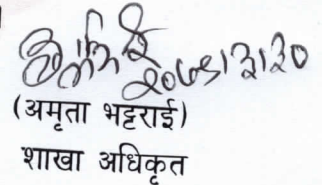 २०७९।३।३०
(अमृता भट्टराई)
शाखा अधिकृत